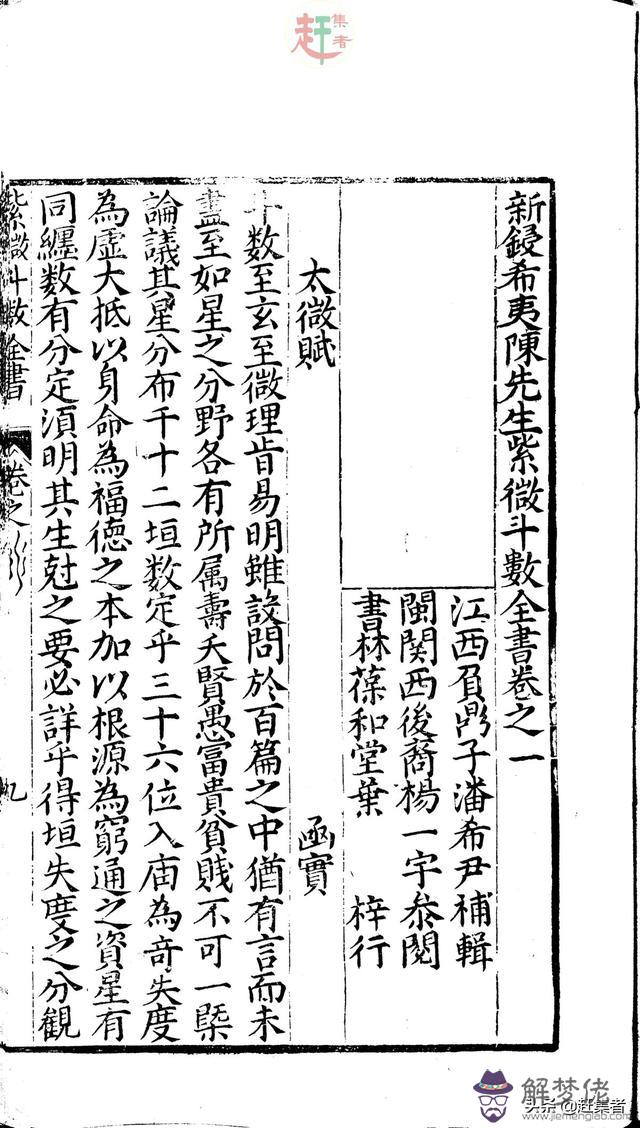 赶集者
新鋟希夷陳先生紫微斗數全書卷之一
江西負鼎子潘希尹補輯
閩関西後裔楊一宇叅閱
書林葆和堂葉 梓行
太微賦 函實
斗数至玄至微理㫖易明雖設問於百篇之中猶有言而未
盡至如星之分野各有所属壽夭賢愚富貴貧賎不可一槩
論議其星分布千十二垣数定乎三十六位入庙為竒失度
為虛大抵以身命為福德之本加以根源為窮通之資星有
同纏数有分定湏明其生尅之要必詳乎得垣失度之分觀
紫微斗數全書 卷之 九
解梦佬
www.jiemenglab.com
头条@赶集者